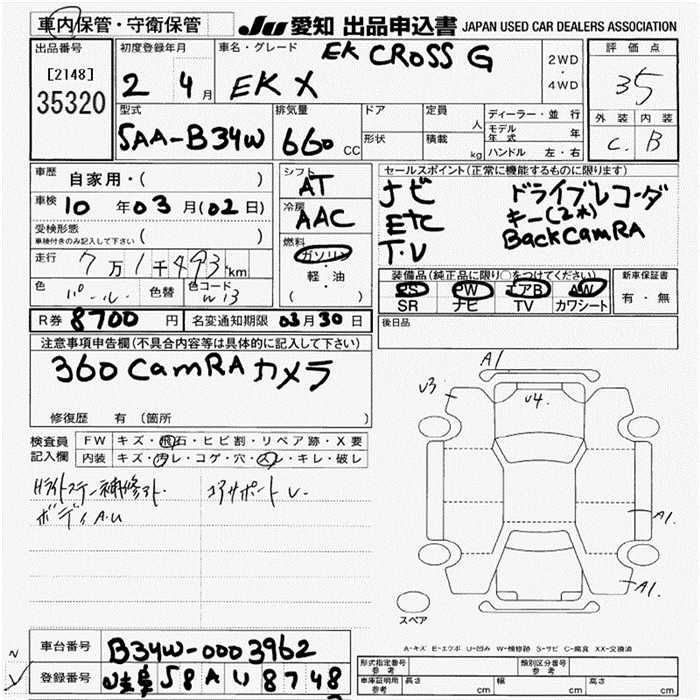 車内保管・守衛保管 JU 愛知 出品申込書 JAPAN USED CAR DEALERS ASSOCIATION
出品番号
[2148]
35320
初度登録年月
2 4月
車名・グレード
EK CROSS G
EK X
2WD
・
4WD
評価点
35
外装 内装
C. B
型式
5AA-B34W
排気量
660 CC
ドア
形状
定員 人
積載 kg
ディーラー・並行
モデル年式 年
ハンドル 左・右
車歴 自家用・( )
車検 10年03月(02日)
受検形態
車検付きのみ記入して下さい ( )
走行 7万1千493km
色 パール 色替 色コード W13
シフト
AT
冷房
AAC
燃料
ガソリン
・
軽・油
( )
セールスポイント(正常に機能するものに限ります)
ナビ ドライブレコーダ
ETC キー(2本)
T.V BackCamRA
装備品(純正品に限り○をつけてください)
PS PW エアB AW
SR ナビ TV カワシート
新車保証書
有・無
R券 8700円 名変通知期限 03月30日
後日品
注意事項申告欄(不具合内容等は具体的に記入して下さい)
360 CamRA カメラ
修復歴 有 (箇所 )
検査員記入欄
FW キズ・飛石・ヒビ割・リペア跡・X要
内装 キズ・汚レ・コゲ・穴・スレ・キレ・破レ
コアサポートU-
ボディA.U
A1
U3
U4.
A1.
A1.
スペア
A-キズ E-エクボ U-凹み W-補修跡 S-サビ C-腐食 XX-交換済
車台番号 B34W-0003962
登録番号 58 A U 8748
型式指定番号 参考
類別区分番号 参考
車庫証明用 参考 長さ cm 幅 cm 高さ cm